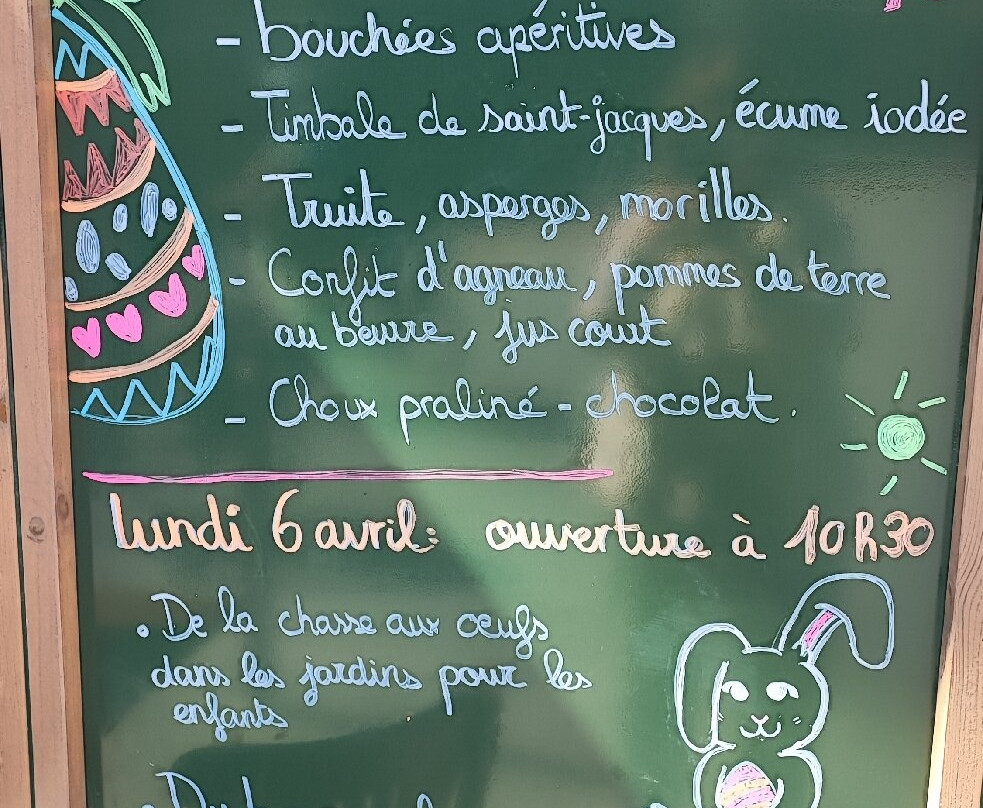 - bouchées apéritives
- Timbale de saint-jacques, écume iodée
- Truite, asperges, morilles.
- Confit d'agneau, pommes de terre
au beurre, jus court
- Choux praliné - chocolat.
lundi 6 avril: ouverture à 10h30
• De la chasse aux oeufs
dans les jardins pour les
enfants